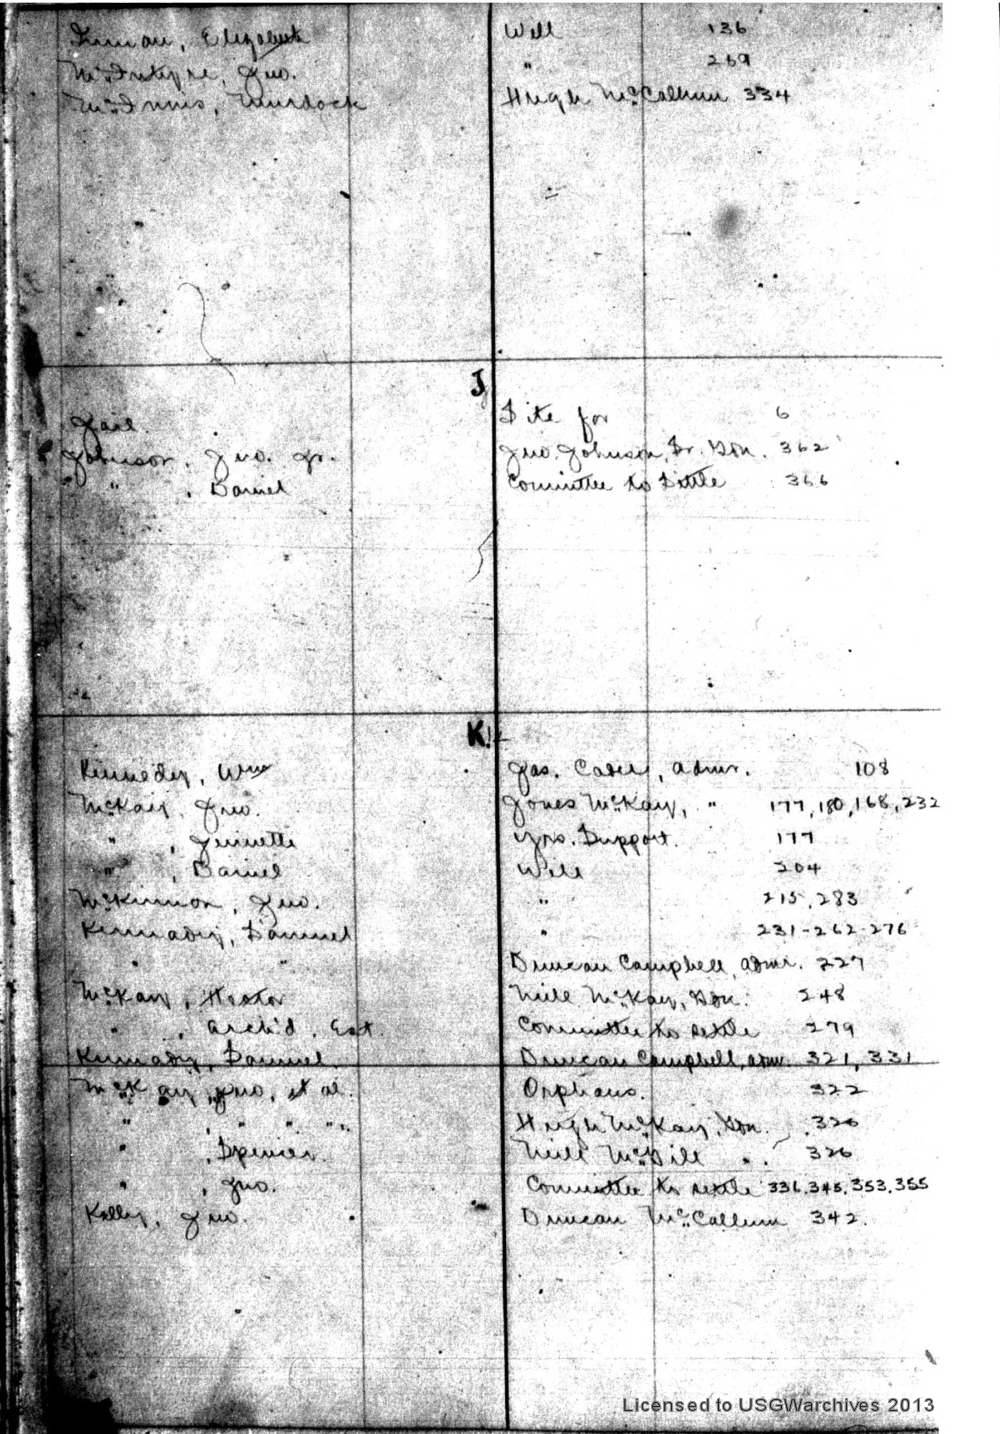 Inman, Elizabeth Will 136
McIntyre, Jno. " 269
McInnis, Murdock Hugh McCalhun 334
J
Jail. Site for 6
Johnson, Jno. Jr. Jno. Johnson, Sr. Gdn. 362
" , Daniel Committee to Settle 366
K
Kennedy, Wm Jas. Cabel, Admr. 108
McKay, Jno. Jones McKay, " 177, 180, 168, 232
" , Jennette Yrs. Support. 177
" , Daniel Will 204
McKinnon, Jno. " 215, 283
Kennady, Samuel " 231-262-276
" " Duncan Campbell, Admr. 227
McKay, Hector Neill McKay, Gdn. 248
" , Arch'd. Est. Committee to settle 279
Kennady, Samuel Duncan Campbell, adm. 321, 331
McKay, Jno, et al. Orphans. 322
" , " " " Hugh McKay, Gdn. 326
" , Spencer. Neill McGill " . 326
" , Jno. Committee to settle 336, 345, 353, 355
Kelly, Jno. Duncan McCallum 342.
Licensed to USGWarchives 2013